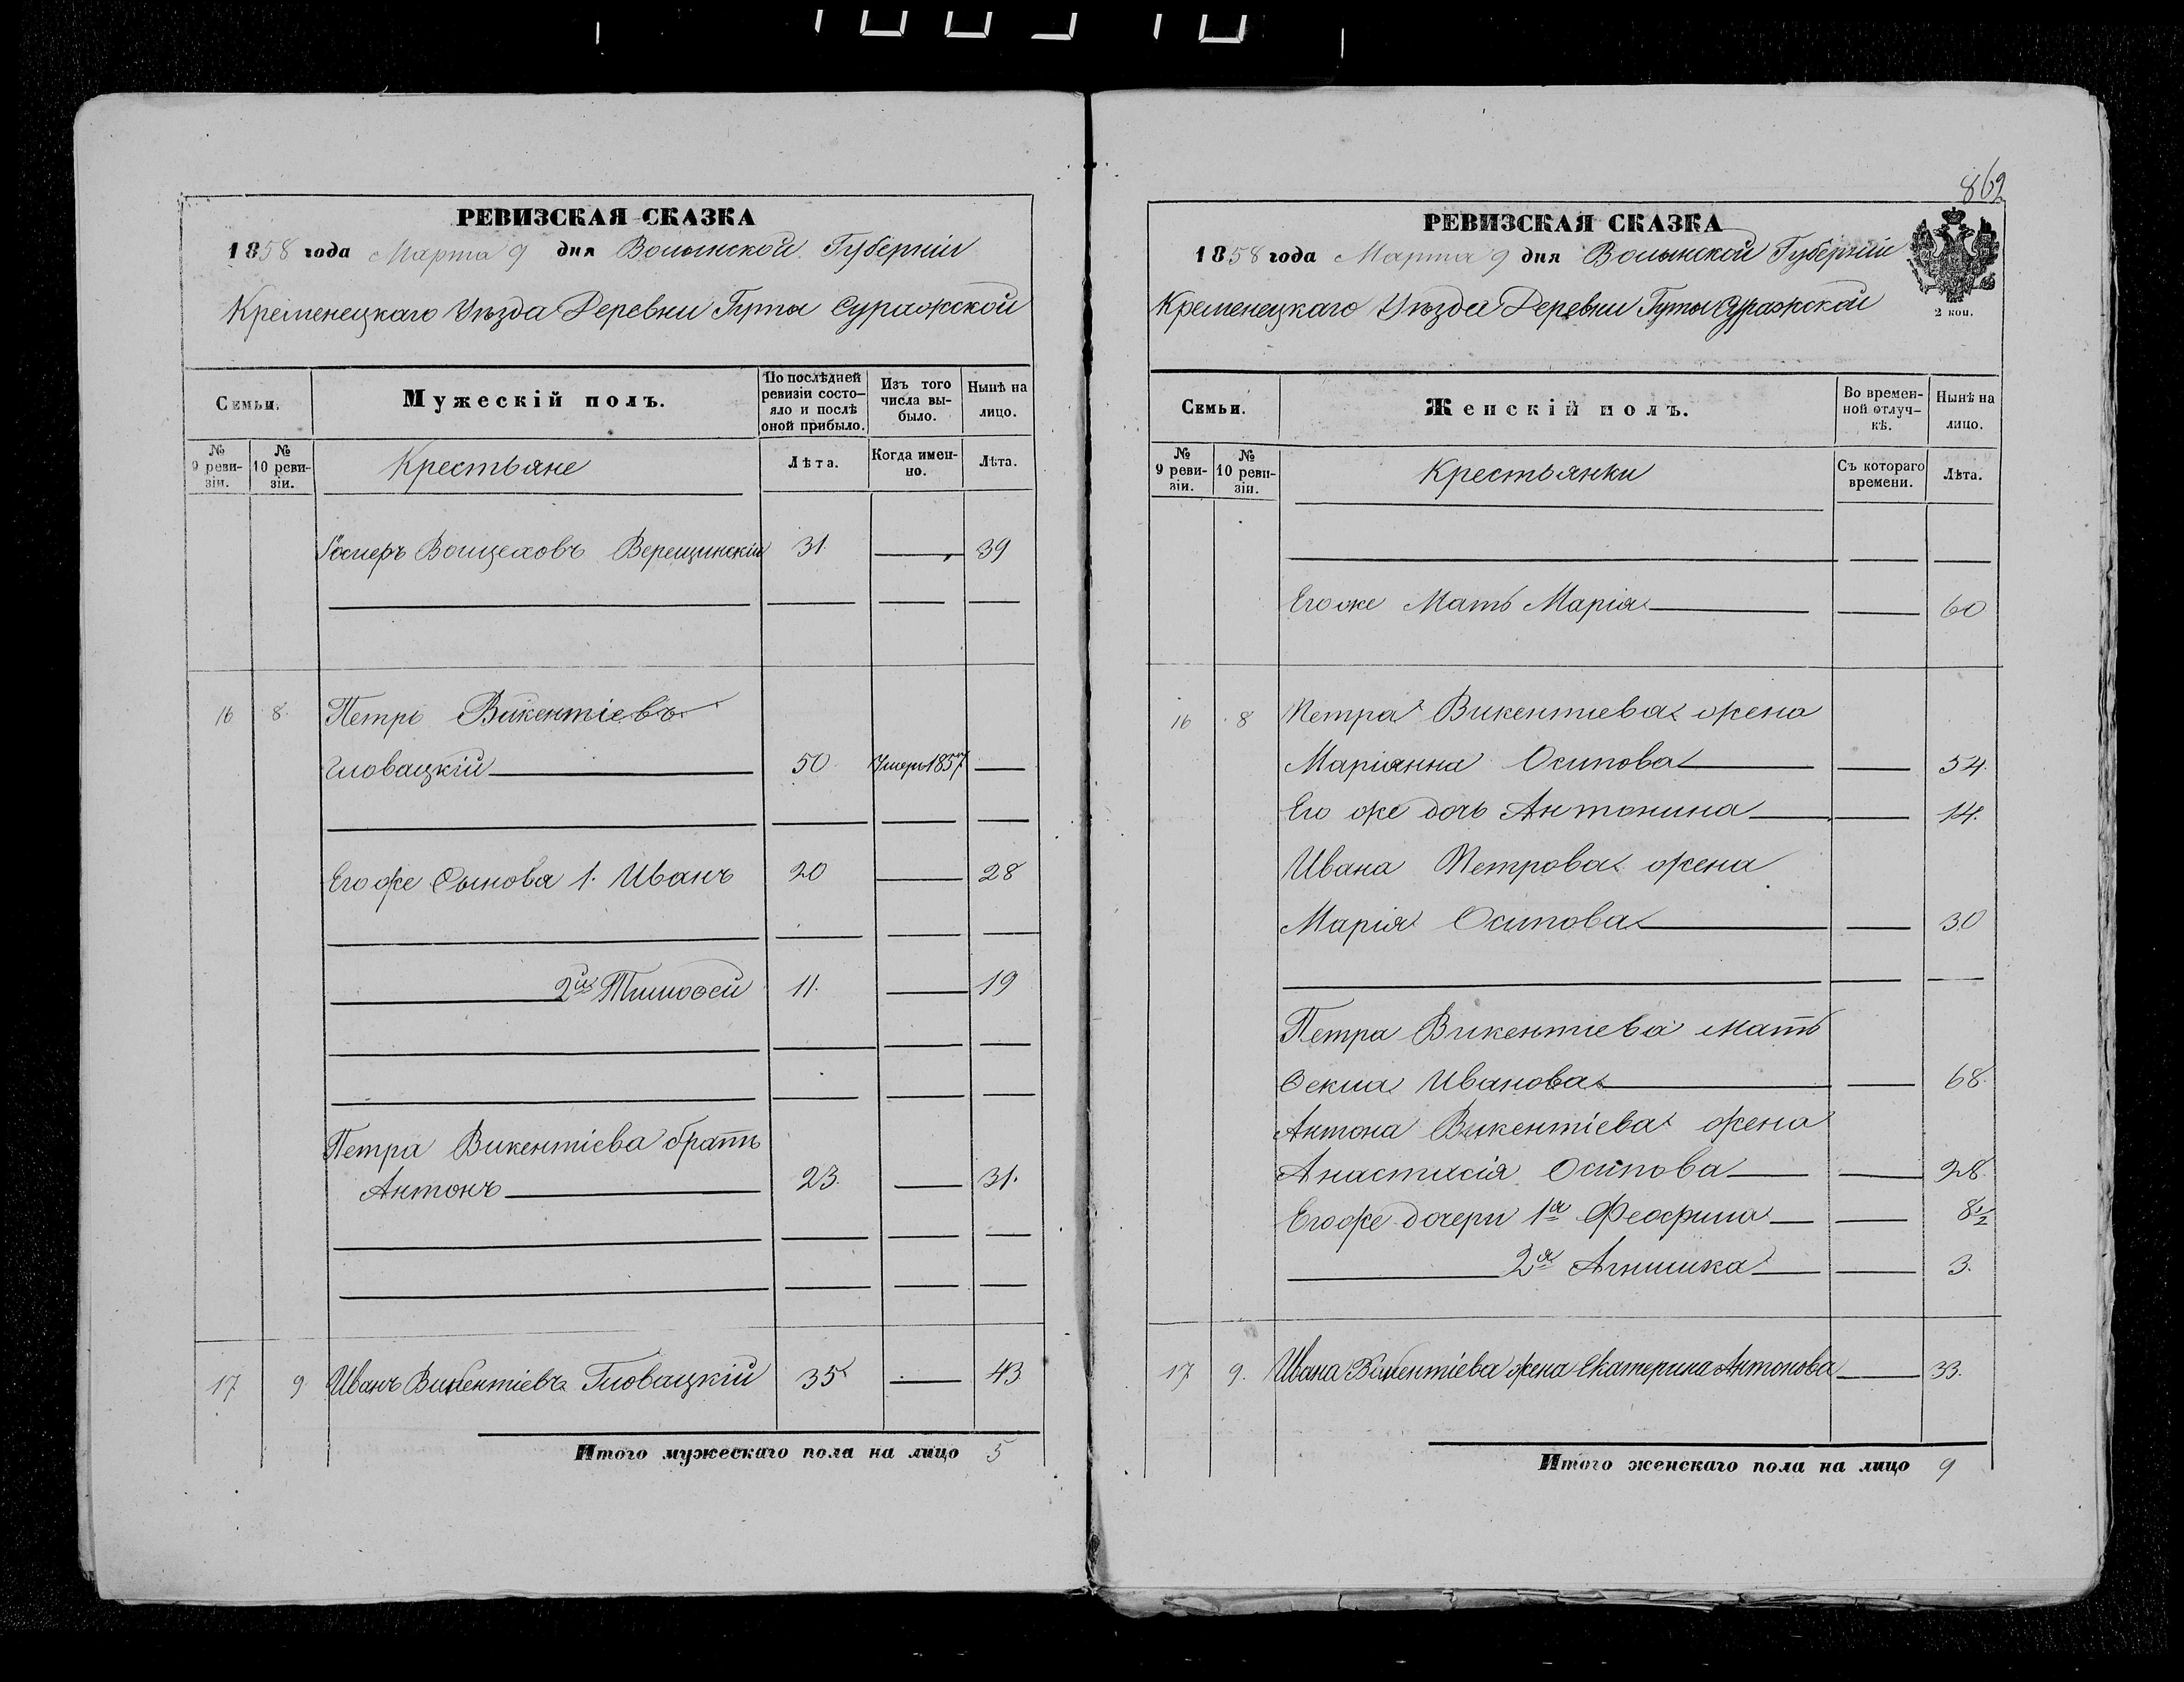 РЕВИЗСКАЯ СКАЗКА
1858 года Марта 9 дня Волынской Губерніи
Кременецкаго Уѣзда Деревни Гуты Суражской
Семьи.
Мужескій полъ.
По послѣдней ревизіи состояло и послѣ оной прибыло.
Изъ того числа выбыло.
Нынѣ на лицо.
№ 9 ревизіи.
№ 10 ревизіи.
Крестьяне
Лѣта.
Когда именно.
Лѣта.
Войцеховъ Верещинскій 31. 39
16 8. Петръ Викентіевъ
Гловацкій 50 Умеръ 1857
Его же Сынова 1. Иванъ 20 28
2й Тимофей 11. 19
Петра Викентіева братъ
Антонъ 23. 31.
17 9 Иванъ Викентіевъ Гловацкій 35 43
Итого мужескаго пола на лицо 5
862
РЕВИЗСКАЯ СКАЗКА
1858 года Марта 9 дня Волынской Губерніи
Кременецкаго Уѣзда Деревни Гуты Суражской
2 коп.
Семьи.
Женскій полъ.
Во временной отлучкѣ.
Нынѣ на лицо.
№ 9 ревизіи.
№ 10 ревизіи.
Крестьянки
Съ котораго времени.
Лѣта.
Его же Мать Марія 60
16 8 Петра Викентіева жена
Маріянна Осипова 54.
Его же дочь Антонина 14.
Ивана Петрова жена
Марія Осипова 30
Петра Викентіева мать
Ѳекла Иванова 68.
Антона Викентіева жена
Анастасія Осипова 28.
Его же дочери 1я Феофила 8½
2я Агнишка 3.
17 9. Ивана Викентіева жена Екатерина Антонова 33.
Итого женскаго пола на лицо 9